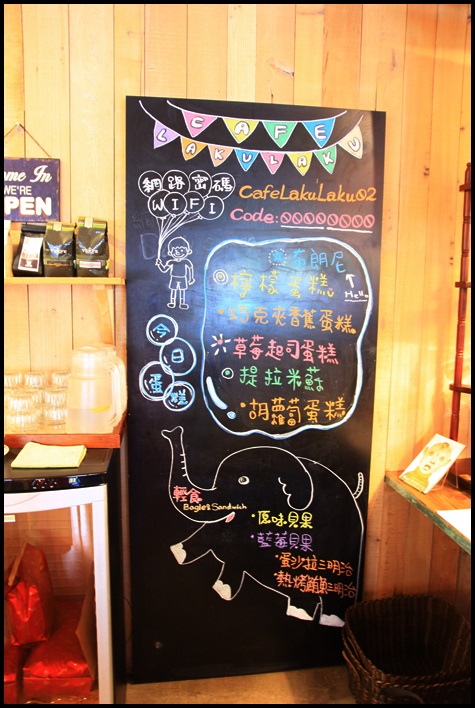 CAFE
LAKULAKU
網路密碼
WIFI
CafeLakuLaku02
Code:00000000
come In
WE'RE
OPEN
布朗尼
Hello
檸檬蛋糕
巧克夾香蕉蛋糕
草莓起司蛋糕
提拉米蘇
胡蘿蔔蛋糕
今日蛋糕
輕食
Bagle & Sandwich
原味貝果
藍莓貝果
蛋沙拉三明治
熱烤鮪魚三明治